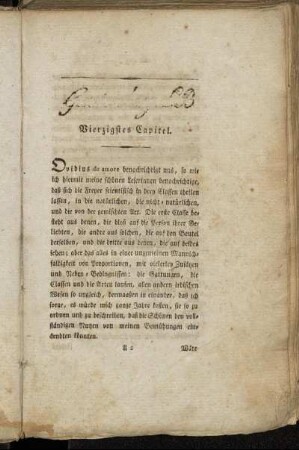 Vierzigstes Capitel.
Ovidius de amore benachrichtigt uns, so wie
ich hiermit meine schönen Leserinnen benachrichtige,
daß sich die Freyer scientifisch in drey Classen theilen
lassen, in die natürlichen, die nicht-natürlichen,
und die von der gemischten Art. Die erste Classe
besteht aus denen, die bloß auf die Person ihrer Ge-
liebten, die andre aus solchen, die auf den Beutel
derselben, und die dritte aus denen, die auf beides
sehen; aber das alles in einer ungemeinen Mannich-
faltigkeit von Proportionen, mit vielerley Zusätzen
und Neben-Bedingnissen: die Gattungen, die
Classen und die Arten laufen, allen andern irdischen
Wesen so ungleich, dermaassen in einander, daß ich
sorge, es würde mich ganze Jahre kosten, sie so zu
ordnen und zu beschreiben, daß die Schönen den voll-
ständigen Nutzen von meinen Bemühungen ein-
erndten könnten.
Wäre